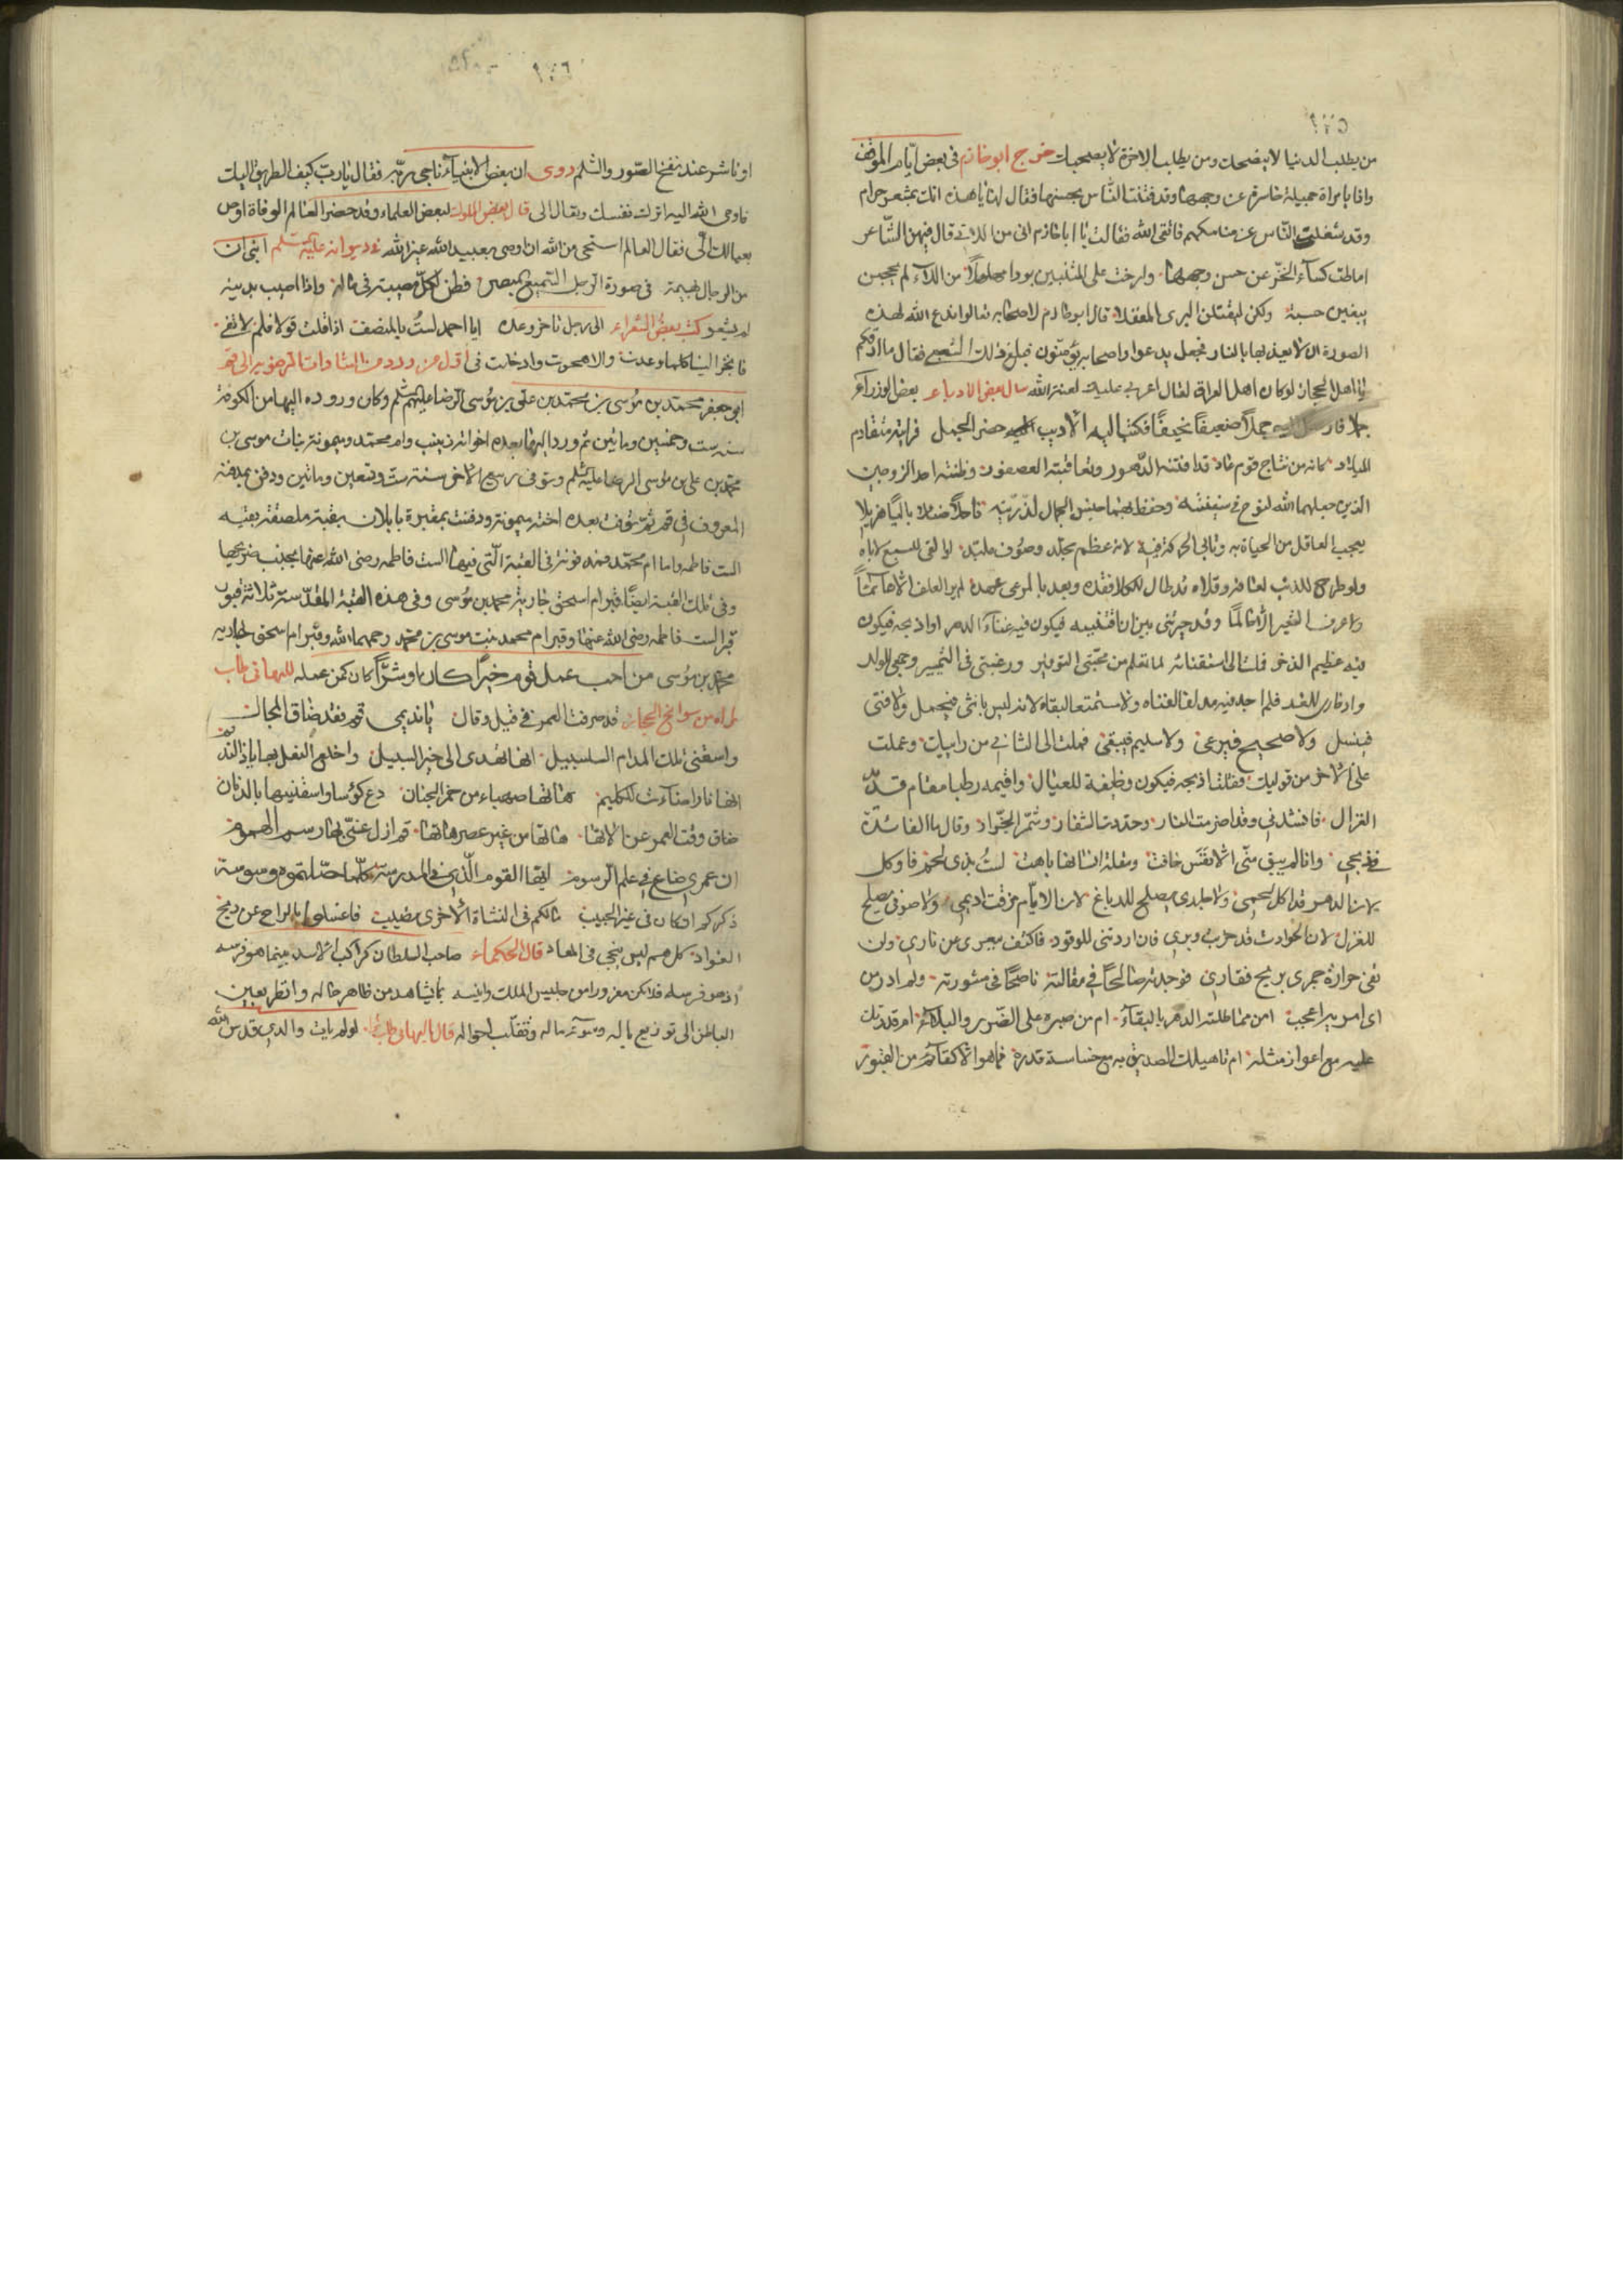 من يطلب الدنيا لا ينصحك ومن يطلب الاخرة لا يصحبك خرج ابو حازم في بعض ايام الموقف
واذا بامراة جميلة حاسرة عن وجهها وقد فتنت الناس بحسنها فقال لها يا هذه انك بمشعر حرام
وقد شغلت الناس عن مناسكهم فاتقى الله فقالت يا ابا حازم انى من اللاتى قال فيهن الشاعر
اماطت كساء الخز عن حسن وجهها وارخت على المتنين بردا مهلهلا من اللاء لم يحججن
يبغين حسبة ولكن ليقتلن البرى المغفلا قال ابو حازم لاصحابه تعالوا ندع الله لهذه
الصورة ان لا يعذبها بالنار فجعل يدعوا واصحابه يؤمنون فبلغ ذلك الشعبى فقال ما ارقكم
يا اهل الحجاز لو كان اهل العراق لقال اعزبى عليك لعنة الله سال بعض الادباء بعض الوزراء
جملا فارسل اليه جملا ضعيفا نحيفا فكتب اليه الاديب حضر الجمل فرايته متقادم
الميلاد كانه من نتاج قوم عاد قد افنته الدهور وتعاقبته العصور وظننته احد الزوجين
الذين جعلهما الله لنوح فى سفينته وحفظ بهما جنس الجمال لذريته ناحلا ضئيلا باليا هزيلا
يعجب العاقل من الحياة به وتاتى الحركة فيه لانه عظم مجلد وصوف ملبد لو القى للسبع لاباه
ولو طرح للذئب لعافه وقلاه قد طال للكلا فقده وبعد بالمرعى عهده لم ير العلف الا نائما
ولا عرف الشعير الا حالما وقد خيرتنى بين ان اقتنيه فيكون فيه غناء الدهر او اذبحه فيكون
فيه عظيم الذخر فملت الى استبقائه لما تعلم من محبتى التوفير ورغبتى فى التثمير وجمعى للولد
وادخارى للغد فلم اجد فيه مدفعا لفناء ولا مستمتعا لبقاء لانه ليس بانثى فيحمل ولا فتى
فينسل ولا صحيح فيرعى ولا سليم فيبقى فملت الى الثانى من رايك وعملت
على الاخر من قوليك فقلت اذبحه فيكون وظيفة للعيال واقيمه رطبا مقام قديد
الغزال فانشدنى وقد اضرمت النار وحددت الشفار وشمر الجزار وقال ما الفائدة
فى ذبحى وانا لم يبق منى الا نفس خافت ومقلة انسانها باهت لست بذى لحم فاوكل
لان الدهر قد اكل لحمى ولا جلدى يصلح للدباغ لان الايام مزقت اديمى ولا صوفى يصلح
للغزل لان الحوادث قد جزت وبرى فان اردتنى للوقود فاكثف بعرى عن نارى ولن
تفى حرارة جمرى بريح قتارى فوجدته صالحا فى مقالته ناصحا فى مشورته ولم ادر من
اى امريه اعجب امن مماطلته الدهر بالبقاء ام من صبره على الضر والبلاء ام قدرتك
عليه مع اعواز مثله ام تاهيلك الصديق به مع خساسة قدره فما هو الا كقائم من القبور
او ناشر عند نفخ الصور والسلم روى ان بعض الانبياء ناجى ربه فقال يا رب كيف الطريق اليك
فاوحى الله اليه اترك نفسك وتعال الى قال بعض الملوك لبعض العلماء وقد حضر العالم الوفاة اوص
بعيالك الى فقال العالم استحى من الله ان اوصى بعبيد الله غير الله ابنى ان
من الرجال بهيمة فى صورة الرجل السميع المبصر فطن لكل مصيبة فى ماله واذا اصيب بدينه
لم يشعر كتب بعض الشعراء الى رجل تاخر وعده ايا احمد لست بالمنصف اذا قلت قولا فلم لا تفى
ابو جعفر محمد بن موسى بن محمد بن على بن موسى الرضا عليهم سلم وكان وروده اليها من الكوفة
سنة ست وخمسين ومائتين ثم ورد اليها بعده اخواته زينب وام محمد وميمونة بنات موسى بن
محمد بن على بن موسى الرضا عليه سلم وتوفى ربيع الاخر سنة ست وتسعين ومائتين ودفن بمدفنه
المعروف فى قم ثم توفيت بعده اخته ميمونة ودفنت بمقبرة بابلان بقبة ملصقة بقبة
الست فاطمه واما ام محمد فمدفونة فى القبة التى فيها الست فاطمه رضى الله عنها بجنب ضريحها
وفى تلك القبة ايضا قبر ام اسحق جارية محمد بن موسى وفى هذه القبة المقدسة ثلاثة قبور
قبر الست فاطمه رضى الله عنها وقبر ام محمد بنت موسى بن محمد رحمهما الله وقبر ام اسحق جارية
محمد بن موسى من احب عمل قوم خيرا كان او شرا كان كمن عمله للبهائى طاب
ثراه من سوانح الحجاز قد صرفت العمر فى قيل وقال يا نديمى قم فقد ضاق المجال
واسقنى تلك المدام السلسبيل انها تهدى الى خير السبيل واخلع النعل بها يا ذا النديم
انها نار اضاءت للكليم هاتها صهباء من خمر الجنان دع كؤسا واسقنيها بالدنان
ضاق وقت العمر عن الاتها هاتها من غير عصر هاتها قم ازل عنى بها رسم الهموم
ان عمرى ضاع فى علم الرسوم ايها القوم الذى فى المدرسة كلما حصلتموه وسوسة
ذكركم ان كان فى غير الحبيب مالكم فى النشاة الاخرى نصيب فاغسلوا بالراح عن لوح
الفؤاد كل علم ليس ينجى فى المعاد قال الحكماء صاحب السلطان كراكب الاسد بينما هو فرسه
اذ هو فريسه فلا تكن مغرورا من جليس الملك وانيسه بما تشاهد من ظاهر حاله وانظر بعين
الباطن الى توزيع باله وسوء ماله وتقلب احواله قال البهائى طاب ثراه لولم يات والدى قدس الله